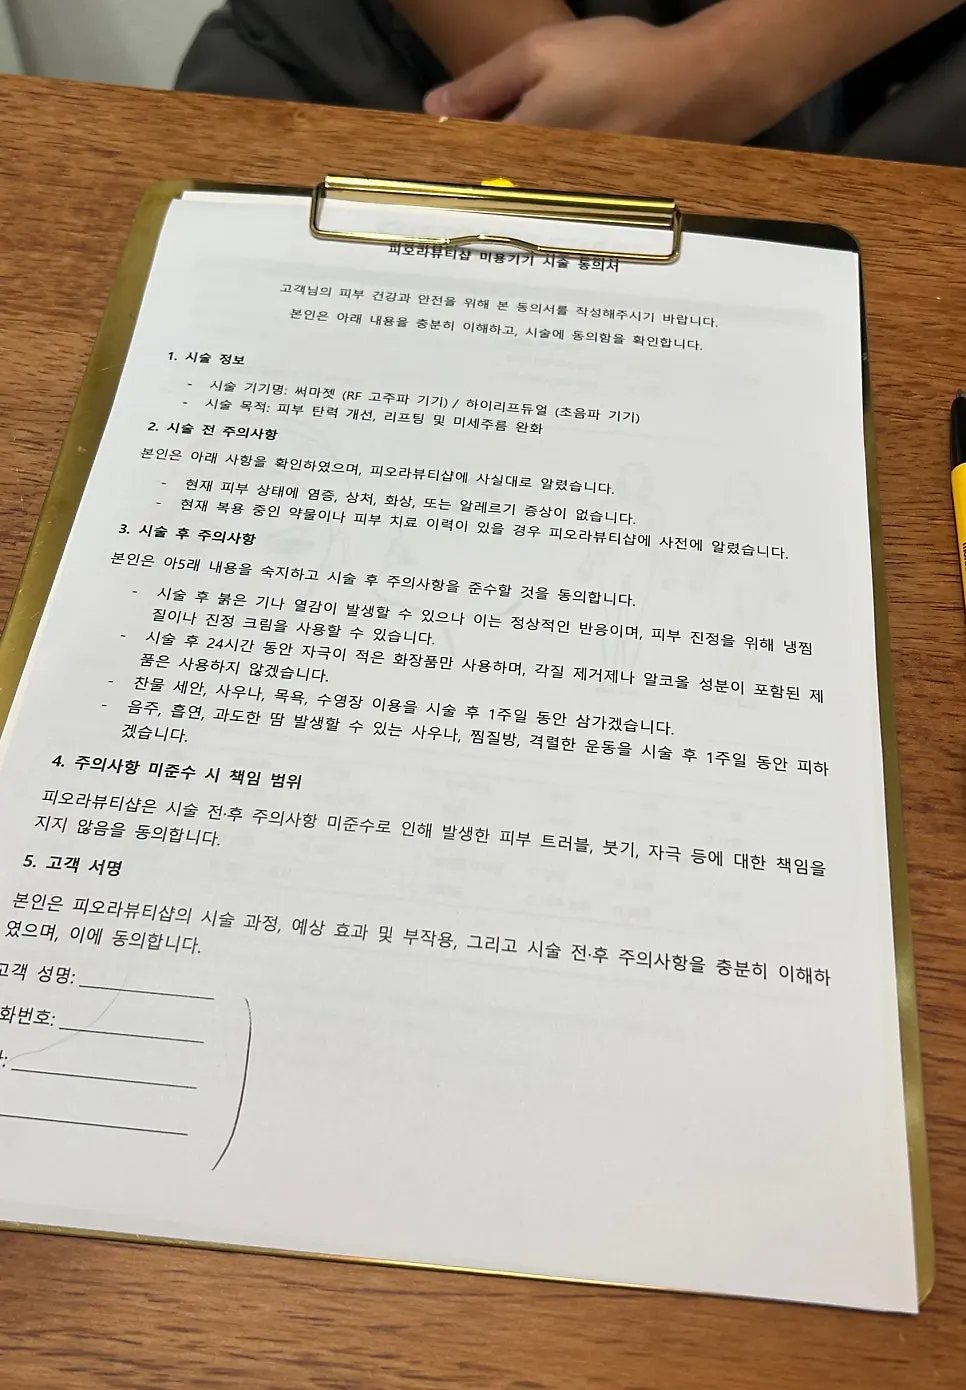 피오라뷰티샵 미용기기 시술 동의서
고객님의 피부 건강과 안전을 위해 본 동의서를 작성해주시기 바랍니다.
본인은 아래 내용을 충분히 이해하고, 시술에 동의함을 확인합니다.
1. 시술 정보
- 시술 기기명: 써마젯 (RF 고주파 기기) / 하이리프듀얼 (초음파 기기)
- 시술 목적: 피부 탄력 개선, 리프팅 및 미세주름 완화
2. 시술 전 주의사항
본인은 아래 사항을 확인하였으며, 피오라뷰티샵에 사실대로 알렸습니다.
- 현재 피부 상태에 염증, 상처, 화상, 또는 알레르기 증상이 없습니다.
- 현재 복용 중인 약물이나 피부 치료 이력이 있을 경우 피오라뷰티샵에 사전에 알렸습니다.
3. 시술 후 주의사항
본인은 아5래 내용을 숙지하고 시술 후 주의사항을 준수할 것을 동의합니다.
- 시술 후 붉은 기나 열감이 발생할 수 있으나 이는 정상적인 반응이며, 피부 진정을 위해 냉찜
질이나 진정 크림을 사용할 수 있습니다.
- 시술 후 24시간 동안 자극이 적은 화장품만 사용하며, 각질 제거제나 알코올 성분이 포함된 제
품은 사용하지 않겠습니다.
- 찬물 세안, 사우나, 목욕, 수영장 이용을 시술 후 1주일 동안 삼가겠습니다.
- 음주, 흡연, 과도한 땀 발생할 수 있는 사우나, 찜질방, 격렬한 운동을 시술 후 1주일 동안 피하
겠습니다.
4. 주의사항 미준수 시 책임 범위
피오라뷰티샵은 시술 전·후 주의사항 미준수로 인해 발생한 피부 트러블, 붓기, 자극 등에 대한 책임을
지지 않음을 동의합니다.
5. 고객 서명
본인은 피오라뷰티샵의 시술 과정, 예상 효과 및 부작용, 그리고 시술 전·후 주의사항을 충분히 이해하
였으며, 이에 동의합니다.
고객 성명:
화번호: